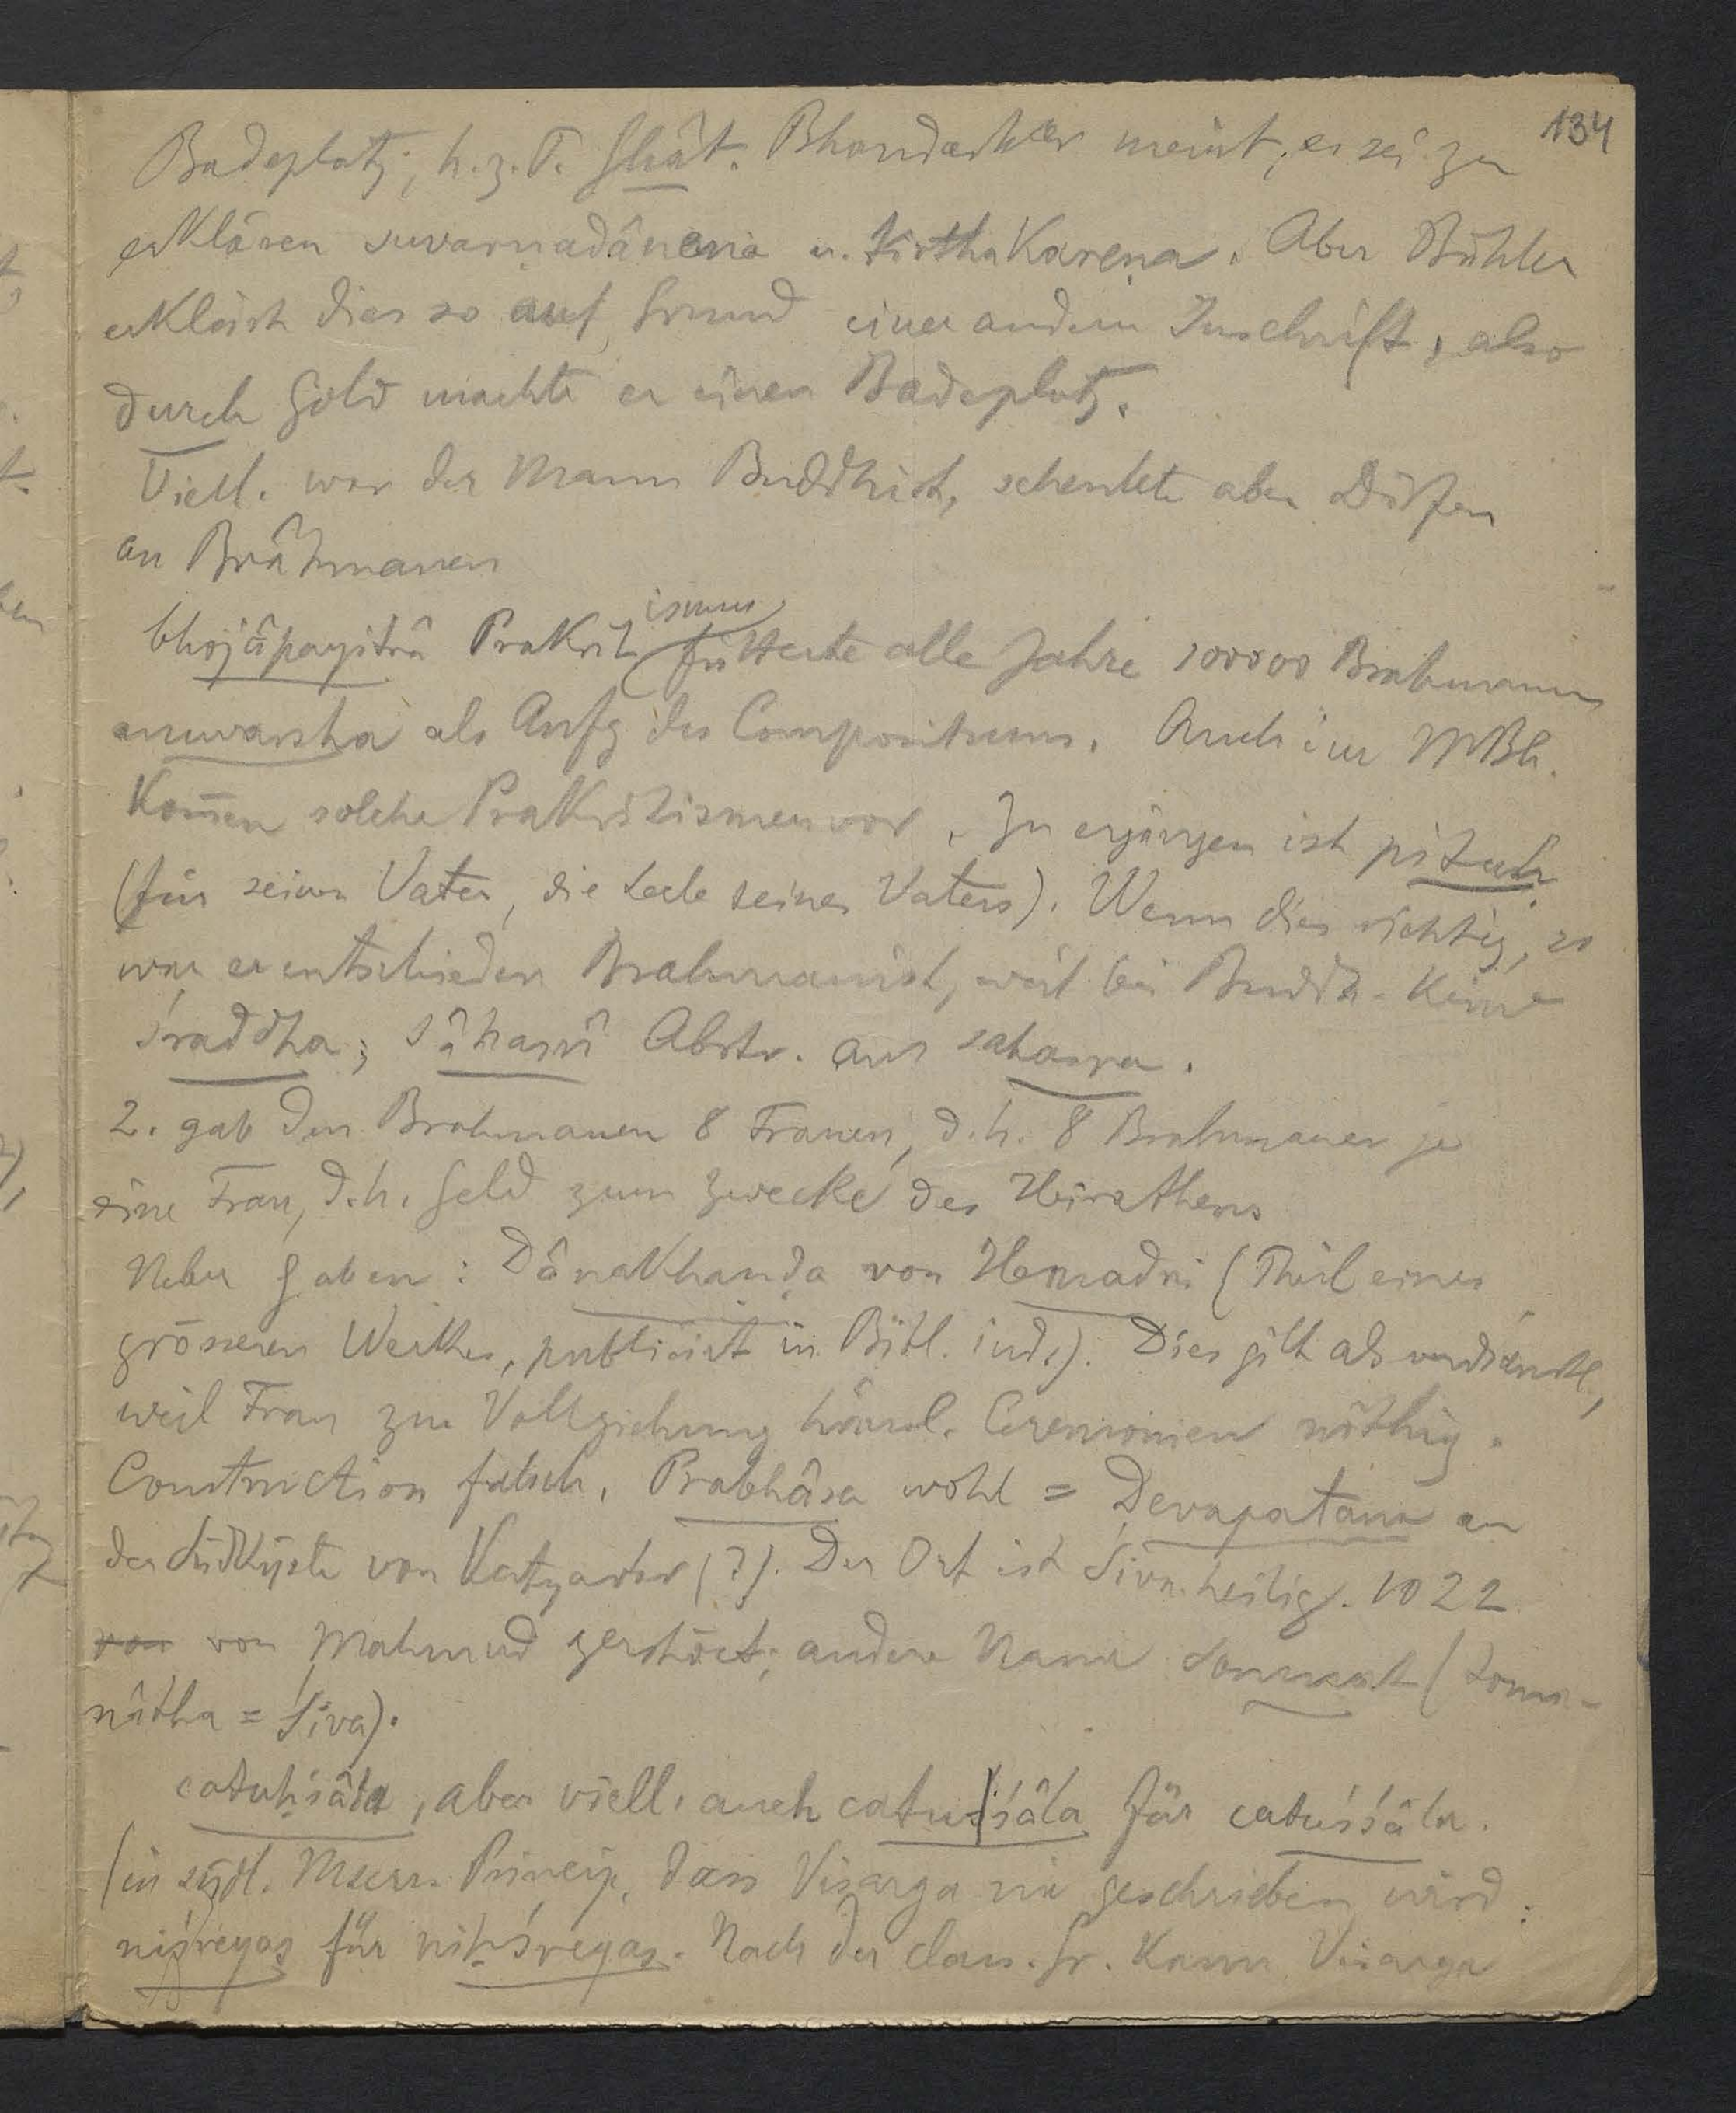 134
Badeplatz, h. z. T. Ghât. Bhandarkar meint, es sei zu
erklären suvarnadânena u. tirthakareṇa. Aber Bühler
erklärt dies so auf Grund einer andern Inschrift, also
durch Gold machte er einen Badeplatz.
Viell. war der Mann Buddhist, schenkte aber Dörfer
an Brâhmanen
bhojâpayitrâ Prakritismus, fütterte alle Jahre 100000 Brahmanen
anuvarsha als Anfg des Compositums. Auch im MBh.
kom̅en solche Prakritismen vor. Zu ergänzen ist pituḥ
(für seinen Vater, die Seele seines Vaters). Wenn dies richtig, so
war er entschieden Brahmanist, weil bei Buddh. keine
śraddha; sâhasrî Abstr. aus sahasra.
2. gab den Brahmanen 8 Frauen, d. h. 8 Brahmanen je
eine Frau, d. h. Geld zum Zwecke des Heirathens
Ueber Gaben: Dânakhaṇḍa von Hemadri (Theil eines
grösseren Werkes, publicirt in Bibl. ind.). Dies gilt als verdienstl,
weil Frau zur Vollziehung häusl. Ceremonien nöthig.
Construction falsch. Prabhâsa wohl = Devapatana an
der Südküste von Katyawar (?). Der Ort ist Śiva heilig. 1022
von von Mahmud zerstört; andere Name Somnat (Soma-
nâtha = Śiva).
catuḥśâla, aber viell. auch catuśâla für catuśśâla.
(in südl. Mscrr. Princip, dass Visarga nie geschrieben wird:
niśreyas für niḥśreyas. Nach der class. Gr. kann Visarga